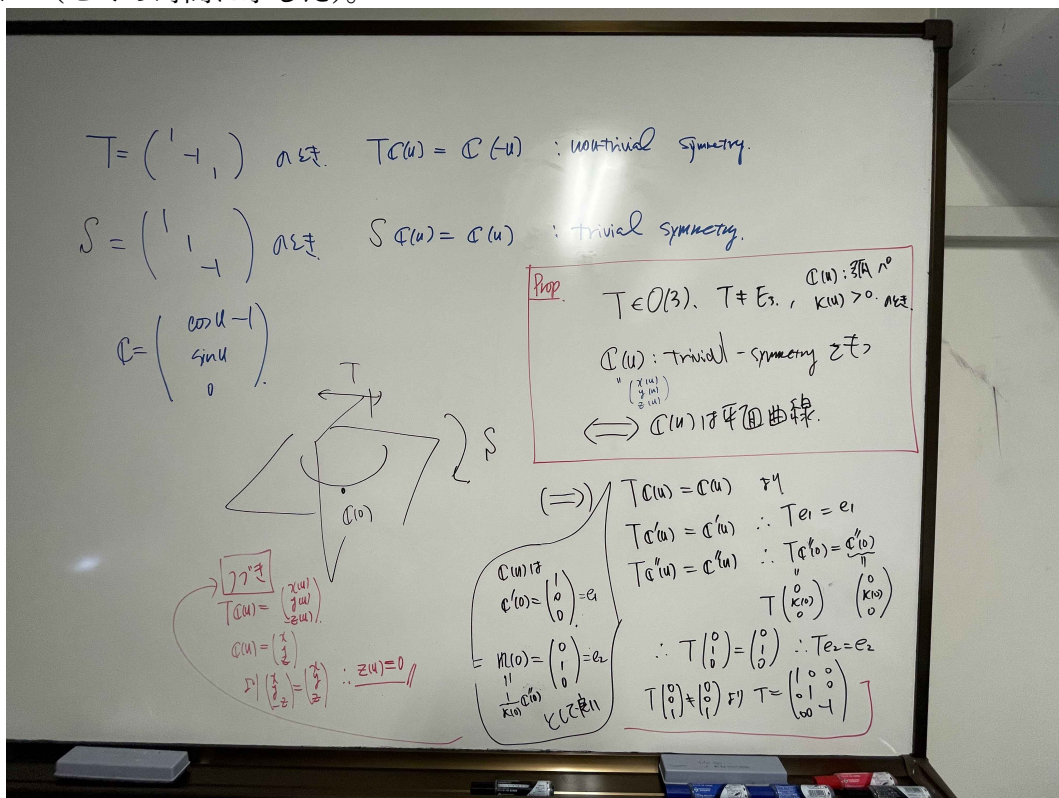 T = ( 1 -1 1 ) のとき. TC(u) = C(-u) : non-trivial symmetry.
S = ( 1 1 -1 ) のとき. S C(u) = C(u) : trivial symmetry.
C = ( cos u - 1
sin u
0 ).
T
S
C(0)
Prop.
T ∈ O(3). T ≠ E3. , C(u) : 弧長
κ(u) > 0. のとき.
C(u) : trivial - symmetry をもつ
" ( x(u) y(u) z(u) )
⟺ C(u) は平面曲線.
(⇒))
TC(u) = C(u) より
TC'(u) = C'(u) ∴ Te1 = e1
TC''(u) = C''(u) ∴ TC''(0) = C''(0)
T ( 0 κ(0) 0 ) ( 0 κ(0) 0 )
∴ T ( 0 1 0 ) = ( 0 1 0 ) ∴ Te2 = e2
T ( 0 0 1 ) ≠ ( 0 0 1 ) より T = ( 1 0 0
0 1 0
0 0 -1 )
C(u) は
C'(0) = ( 1 0 0 ) = e1.
n(0) = ( 0 1 0 ) = e2
"
1/κ(0) C''(0)
として良い
つづき
TC(u) = ( x(u) y(u) -z(u) )
C(u) = ( x y z )
より ( x y -z ) = ( x y z ) ∴ z(u) = 0 //